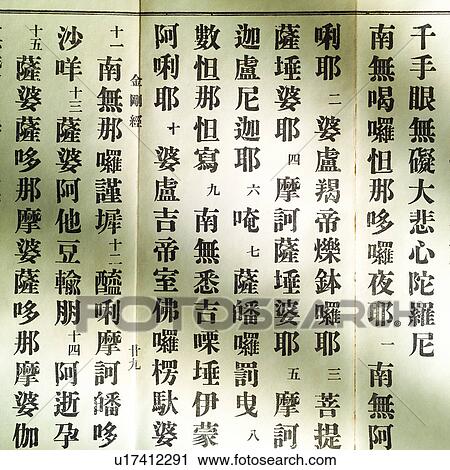 千手眼無礙大悲心陀羅尼
南無喝囉怛那哆囉夜耶 一 南無阿
唎耶 二 婆盧羯帝爍鉢囉耶 三 菩提
薩埵婆耶 四 摩訶薩埵婆耶 五 摩訶
迦盧尼迦耶 六 唵 七 薩皤囉罰曳 八
數怛那怛寫 九 南無悉吉㗚埵伊蒙
阿唎耶 十 婆盧吉帝室佛囉楞馱婆
金剛經
廿九
十一 南無那囉謹墀 十二 醯唎摩訶皤哆
沙咩 十三 薩婆阿他豆輸朋 十四 阿逝孕
十五 薩婆薩哆那摩婆薩哆那摩婆伽
FOTOSEARCH
u17412291 www.fotosearch.com